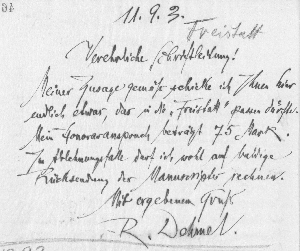 11.9.3.
Freistatt
Verehrliche Schriftleitung!
Meiner Zusage gemäß schicke ich Ihnen hier
endlich etwas, das in die „Freistatt" passen dürfte.
Mein Honoraranspruch beträgt 75 Mark.
Im Ablehnungsfalle darf ich wohl auf baldige
Rücksendung der Manuscripte rechnen.
Mit ergebenem Gruß
R. Dehmel.